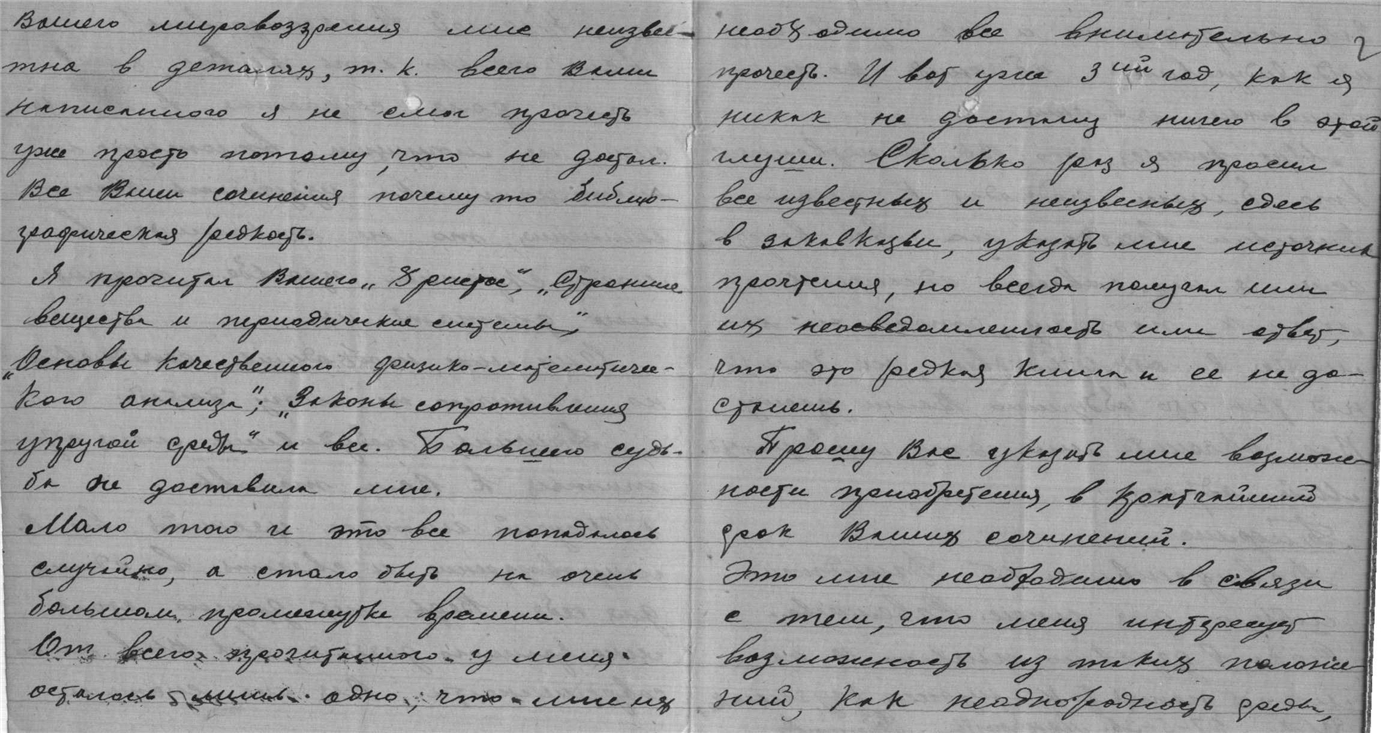 Вашего мировоззрения мне неизвес-
тна в деталях, т. к. всего Вами
написанного я не смог прочесть
уже просто потому, что не достал.
Все Ваши сочинения почему то библио-
графическая редкость.
Я прочитал Вашего „Христос", „Строение
вещества и периодические системы",
„Основы качественного физико-математичес-
кого анализа"; „Законы сопротивления
упругой среды" и все. Большего судь-
ба не доставила мне.
Мало того и это все попадалось
случайно, а стало быть на очень
большом промежутке времени.
От всего прочитанного у меня
осталось лишь одно, что мне их
2
необходимо все внимательно
прочесть. И вот уже 3ий год, как я
никак не достану ничего в этой
глуши. Сколько раз я просил
все известных и неизвесных, сдесь
в Закавказьи, указать мне источник
прочтения, но всегда получал или
их неосведомленность или ответ,
что это редкая книга и ее не до-
станешь.
Прошу Вас указать мне возмож-
ности приобретения, в кратчайший
срок Ваших сочинений.
Это мне необходимо в связи
с тем, что меня интересует
возможность из таких положе-
ний, как неоднородность среды,